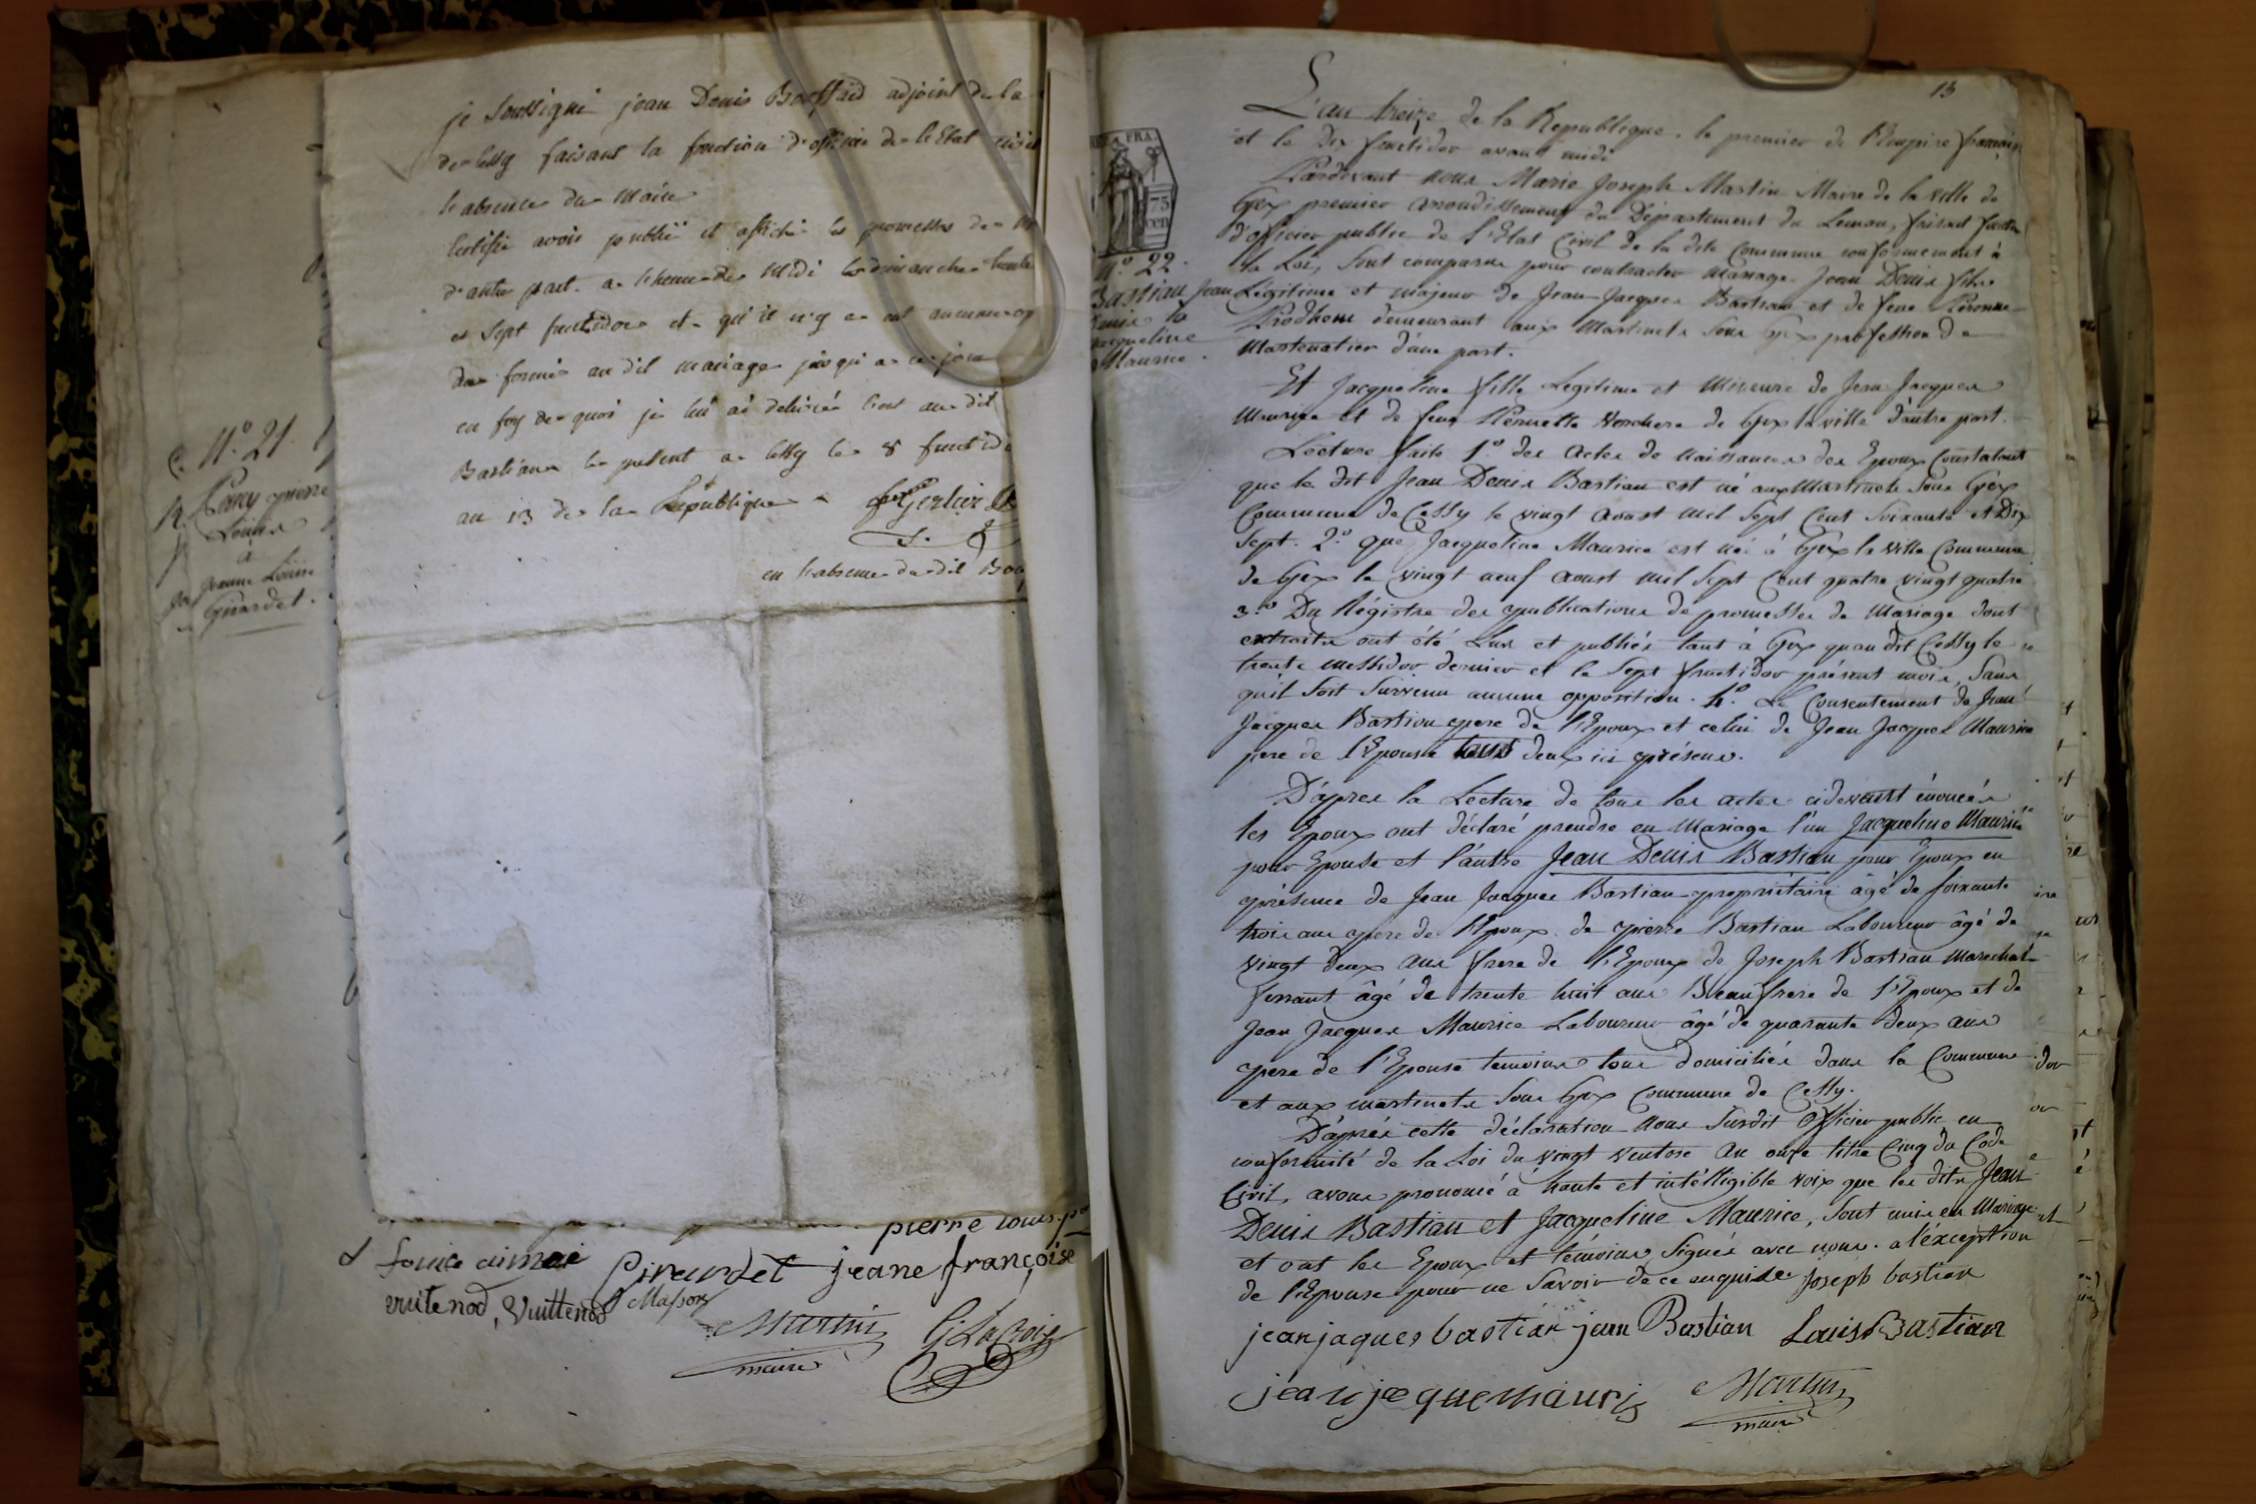 je soussigné jean Denis adjoint de la
de Cessy faisant la fonction d'officier de l'Etat civil
l'absence du Maire
Certifie avoir publié et affiché les promesses de
d'autre part. a l'heure de Midi les dimanches trente
et sept fructidor et qu'il n'y a eut aucunne op
formée au dit mariage jusqu'a ce jour
en foy de quoi je lui ai delivré au dit
Bastian le present a Cessy le 8 fructidor
an 13 de la République
en l'absence du dit
N.° 21.
Louis
a
Jeanne Louise
Girardet.
pierre louis
Girardet jeane françoise
vuitenod, Vuittenod Masson
Martin G. LaCroix
maire
13
L'an treize de la Republique. le premier de l'Empire français
et le dix fructidor avant midi
Pardevant nous Marie Joseph Martin Maire de la ville de
Gex premier arrondissement du Département du Leman, faisant
d'officier public de l'Etat Civil de la dite Commune conformement à
la Loi, sont comparus pour contracter mariage. Jean Denis fils
Légitime et majeur de Jean Jacques Bastian et de feue Péronne
Prodhom demeurant aux Martinets sous Gex profession de
d'une part.
FRA
75
CEN
N.° 22.
Bastian Jean
Denis to
Jacqueline
Maurice.
Et Jacqueline fille Legitime et Mineure de Jean Jacques
Maurice et de feue Pernette de Gex la ville d'autre part.
Lecture faite 1.° des actes de naissances des Epoux Constatant
que le dit Jean Denis Bastian est né aux Martinets sous Gex
Commune de Cessy le vingt aoust mil sept Cent soixante et Dix
sept. 2.° que Jacqueline Maurice est née à Gex la ville Commune
de Gex le vingt neuf aoust mil sept Cent quatre vingt quatre
3.° Du Régistre des publications de promesses de Mariage dont
extraits ont été Lus et publiés tant à Gex qu'au dit Cessy le
trente messidor dernier et le sept fructidor présent mois, sans
qu'il soit survenu aucune opposition. 4.° Le Consentement de Jean
Jacques Bastian pere de l'Epoux et celui de Jean Jacques Maurice
pere de l'Epouse tous deux ici présens.
D'apres la Lecture de tous les actes cidevant énoncés
les Epoux ont déclaré prendre en Mariage l'un Jacqueline Maurice
pour Epouse et l'autre Jean Denis Bastian pour Epoux en
présence de Jean Jacques Bastian propriétaire âgé de soixante
trois ans pere de l'Epoux. de pierre Bastian Laboureur âgé de
vingt deux ans frere de l'Epoux de Joseph Bastian Marechal
ferrant âgé de trente huit ans Beaufrere de l'Epoux et de
Jean Jacques Maurice Laboureur âgé de quarante deux ans
pere de l'Epouse temoins tous domiciliés dans la Commune
et aux martinets sous Gex Commune de Cessy.
D'après cette déclaration nous susdit Officier public en
conformité de la Loi du vingt ventose an onze titre Cinq du Code
Civil, avons prononcé à haute et intélligible voix que les dits Jean
Denis Bastian et Jacqueline Maurice, sont unis en Mariage
et ont les Epoux et témoins signés avec nous. a l'éxception
de l'Epouse pour ne savoir de ce enquise Joseph bastian
jean jaques bastian jean Bastian Louis Bastian
jean jaque Mauris Martin
maire